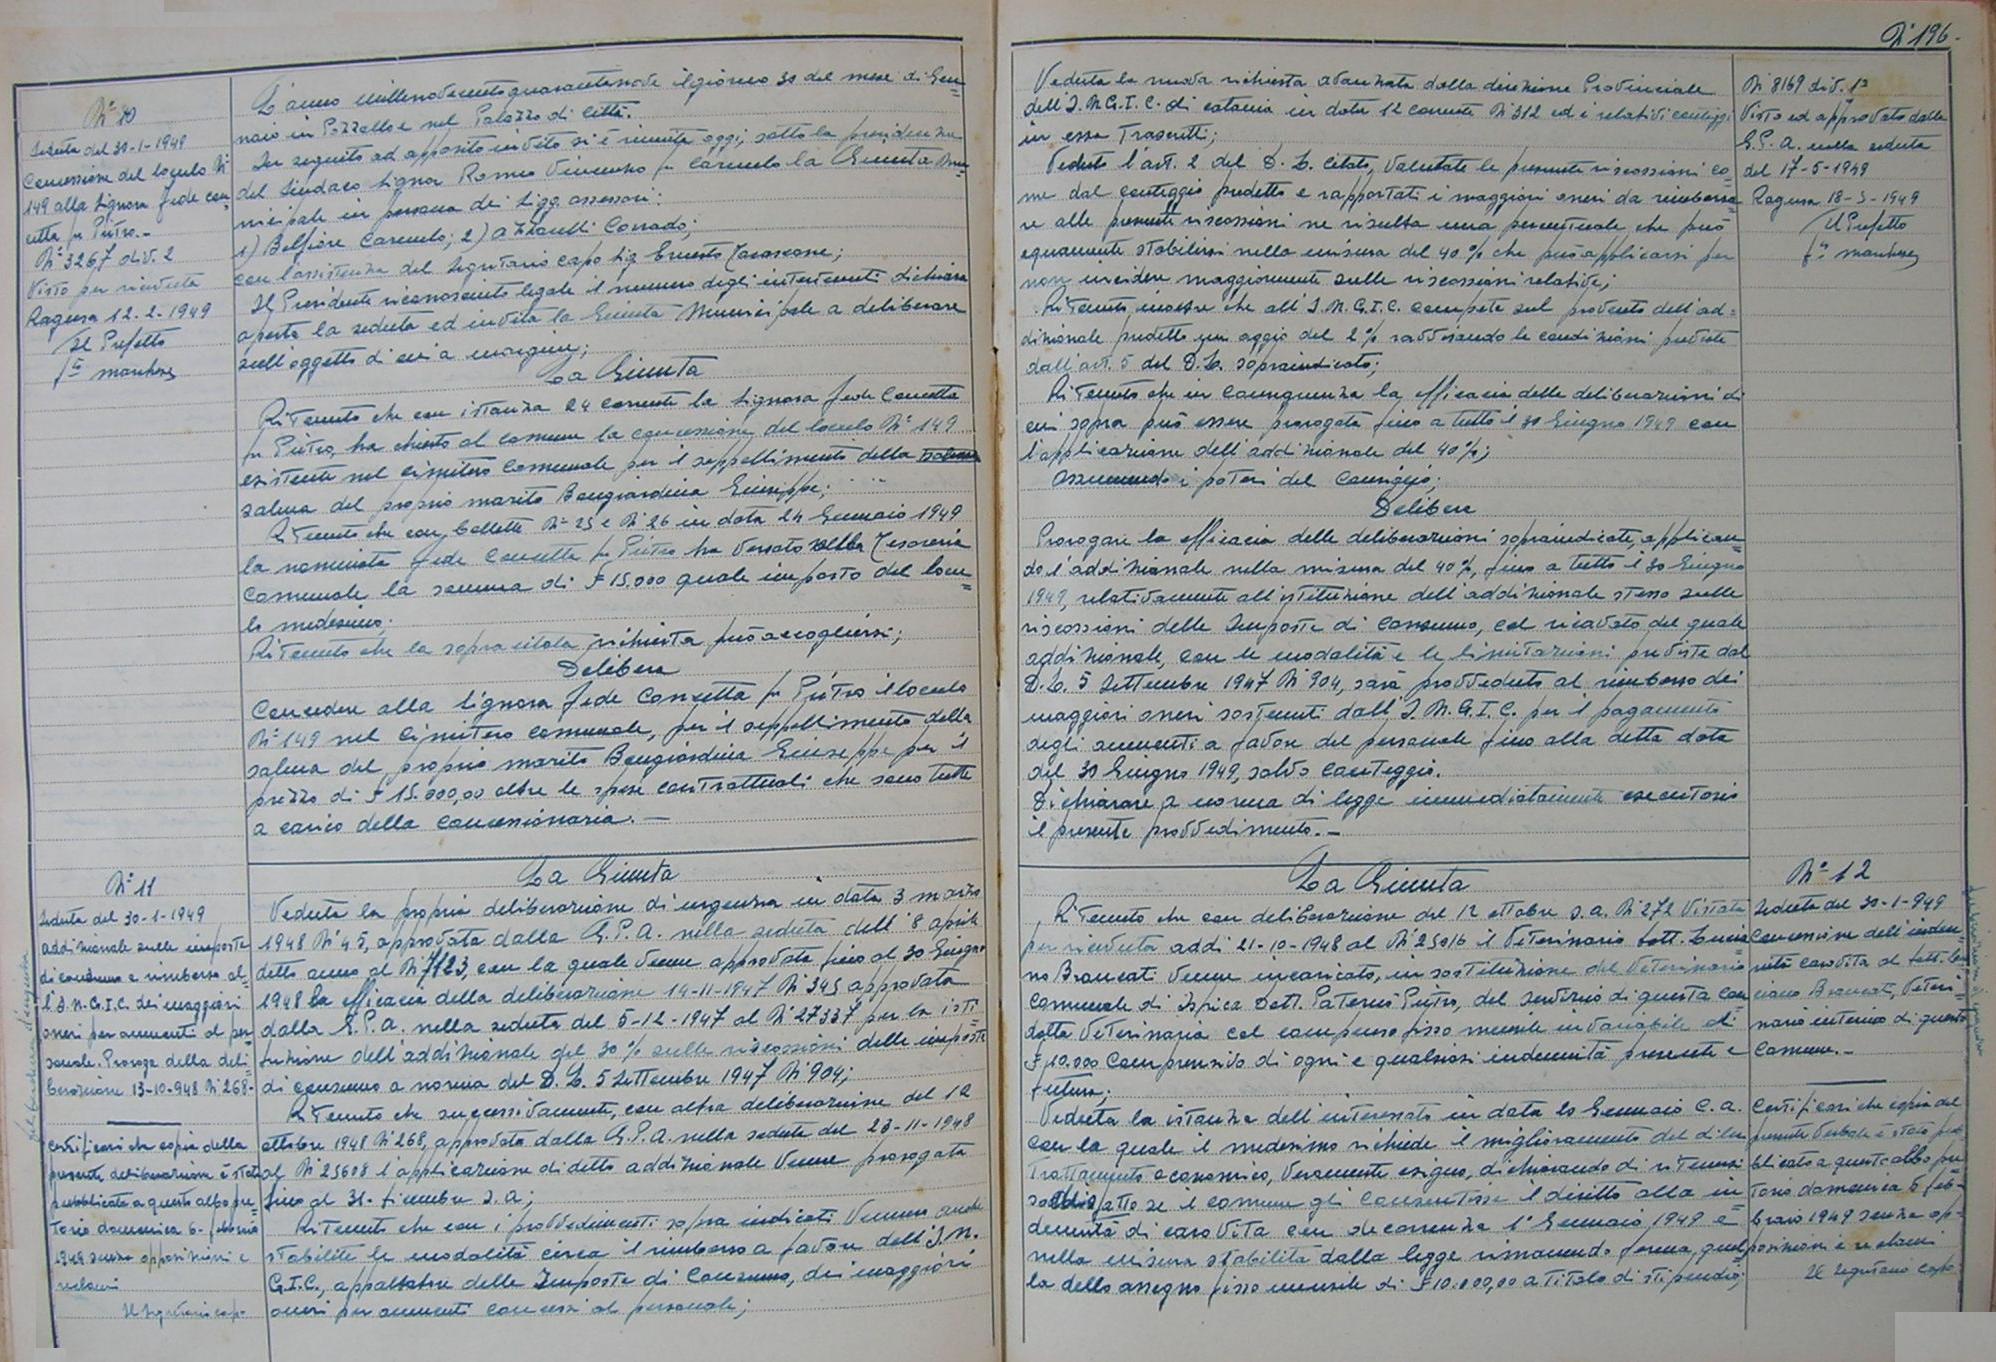 N° 10
Seduta del 30-1-1949
Concessione del loculo N°
149 alla Signora Fede Con=
cetta fu Pietro.-
N° 3267 div. 2
Visto per ricevuta
Ragusa 12-2-1949
Il Prefetto
L'anno millenovecentoquarantanove il giorno 30 del mese di Gen=
naio in Pozzallo e nel Palazzo di Città.
In seguito ad apposito invito si è riunita oggi, sotto la presidenza
del Sindaco Signor Romeo Vincenzo fu Carmelo la Giunta Mu=
nicipale in persona dei Sigg. assessori:
1) Belfiore Carmelo; 2) Azzarelli Corrado;
con l'assistenza del Segretario capo Sig. Ernesto Tarascone;
Il Presidente riconosciuto legale il numero degli intervenuti dichiara
aperta la seduta ed invita la Giunta Municipale a deliberare
sull'oggetto di cui a margine;
La Giunta
Ritenuto che con istanza 24 corrente la Signora Fede Concetta
fu Pietro, ha chiesto al comune la concessione del loculo N° 149
esistente nel cimitero comunale per il seppellimento della
salma del proprio marito Bongiardina Giuseppe;
Ritenuto che con bollette N° 25 e N° 26 in data 24 Gennaio 1949
la nominata Fede Concetta fu Pietro ha versato alla Tesoreria
Comunale la somma di £ 15.000 quale importo del locu=
lo medesimo;
Ritenuto che la sopracitata richiesta può accogliersi;
Delibera
Concedere alla Signora Fede Concetta fu Pietro il loculo
N° 149 nel Cimitero comunale, per il seppellimento della
salma del proprio marito Bongiardina Giuseppe per il
prezzo di £ 15.000,00 oltre le spese contrattuali che sono tutte
a carico della concessionaria.-
N° 11
Seduta del 30-1-1949
addizionale sulle imposte
di consumo e rimborso al=
l'I.N.G.I.C. dei maggiori
oneri per aumenti al per=
sonale. Proroga della deli=
berazione 13-10-948 N° 268-
Certificasi che copia della
presente deliberazione è stata
pubblicata a questo albo pre=
torio domenica 6- febbraio
1949 senza opposizioni e
reclami
Il Segretario capo
La Giunta
Veduta la propria deliberazione di urgenza in data 3 marzo
1948 N° 45, approvata dalla G.P.A. nella seduta dell'8 aprile
detto anno al N° 7123, con la quale venne approvata fino al 30 Giugno
1948 la efficacia della deliberazione 14-11-1947 N° 345 approvata
dalla G.P.A. nella seduta del 5-12-1947 al N° 27337 per la isti=
tuzione dell'addizionale del 30% sulle riscossioni delle imposte
di consumo a norma del D.L. 5 Settembre 1947 N° 904;
Ritenuto che successivamente, con altra deliberazione del 12
ottobre 1948 N° 268, approvata dalla G.P.A. nella seduta del 23-11-1948
al N° 25608 l'applicazione di detta addizionale venne prorogata
fino al 31- Dicembre s.a;
Ritenuto che con i provvedimenti sopra indicati vennero anche
stabilite le modalità circa il rimborso a favore dell'I.N.
G.I.C., appaltatore delle Imposte di Consumo, dei maggiori
oneri per aumenti concessi al personale;
N° 196.
Veduta la nuova richiesta avanzata dalla direzione Provinciale
dell'I.N.G.I.C. di Catania in data 12 corrente N° 312 ed i relativi conteggi
in essa trascritti;
Veduto l'art. 2 del D.L. citato, valutate le presunte riscossioni co=
me dal conteggio predetto e rapportati i maggiori oneri da rimborsa=
re alle presunte riscossioni ne risulta una percentuale che può
equamente stabilirsi nella misura del 40% che può applicarsi per
non incidere maggiormente sulle riscossioni relative;
Ritenuto inoltre che all'I.N.G.I.C. compete sul provento dell'ad=
dizionale predetto un aggio del 2% ravvisando le condizioni previste
dall'art. 5 del D.L. sopraindicato;
Ritenuto che in conseguenza la efficacia delle deliberazioni di
cui sopra può essere prorogata fino a tutto il 30 Giugno 1949 con
l'applicazione dell'addizionale del 40%;
Assumendo i poteri del Consiglio;
Delibera
Prorogare la efficacia delle deliberazioni sopraindicate, applican=
do l'addizionale nella misura del 40%, fino a tutto il 30 Giugno
1949, relativamente all'istituzione dell'addizionale stessa sulle
riscossioni delle Imposte di Consumo, col ricavato del quale
addizionale, con le modalità e le limitazioni previste dal
D.L. 5 Settembre 1947 N° 904, sarà provveduto al rimborso dei
maggiori oneri sostenuti dall'I.N.G.I.C. per il pagamento
degli aumenti a favore del personale fino alla detta data
del 30 Giugno 1949, salvo conteggio.
Dichiarare a norma di legge immediatamente esecutorio
il presente provvedimento.-
N° 8169 div. 1a
Visto ed approvato dalla
G.P.A. nella seduta
del 17-5-1949
Ragusa 18-5-1949
Il Prefetto
La Giunta
Ritenuto che con deliberazione del 12 ottobre s.a. N° 272 vistata
per ricevuta addì 21-10-1948 al N° 25016 il Veterinario Dott. Lucia=
no Brancati venne incaricato, in sostituzione del Veterinario
Comunale di Ispica Dott. Paternò Pietro, del servizio di questa Con=
dotta Veterinaria col compenso fisso mensile invariabile di
£ 10.000 comprensivo di ogni e qualsiasi indennità presente e
futura;
Veduta la istanza dell'interessato in data 10 Gennaio c.a.
con la quale il medesimo richiede il miglioramento del di lui
trattamento economico, veramente esiguo, dichiarando di ritenersi
soddisfatto se il comune gli consentisse il diritto alla in=
dennità di carovita con decorrenza 1° Gennaio 1949 e
nella misura stabilita dalla legge rimanendo ferma quel=
la dello assegno fisso mensile di £ 10.000,00 a titolo di stipendio;
N° 12
Seduta del 30-1-949
Concessione dell'inden=
nità carovita al dott. Lu=
ciano Brancati, Veteri=
nario interino di questo
Comune.-
Certificasi che copia del
presente verbale è stata pub=
blicata a questo albo pre=
torio domenica 6 feb=
braio 1949 senza op=
posizioni e reclami
Il Segretario capo